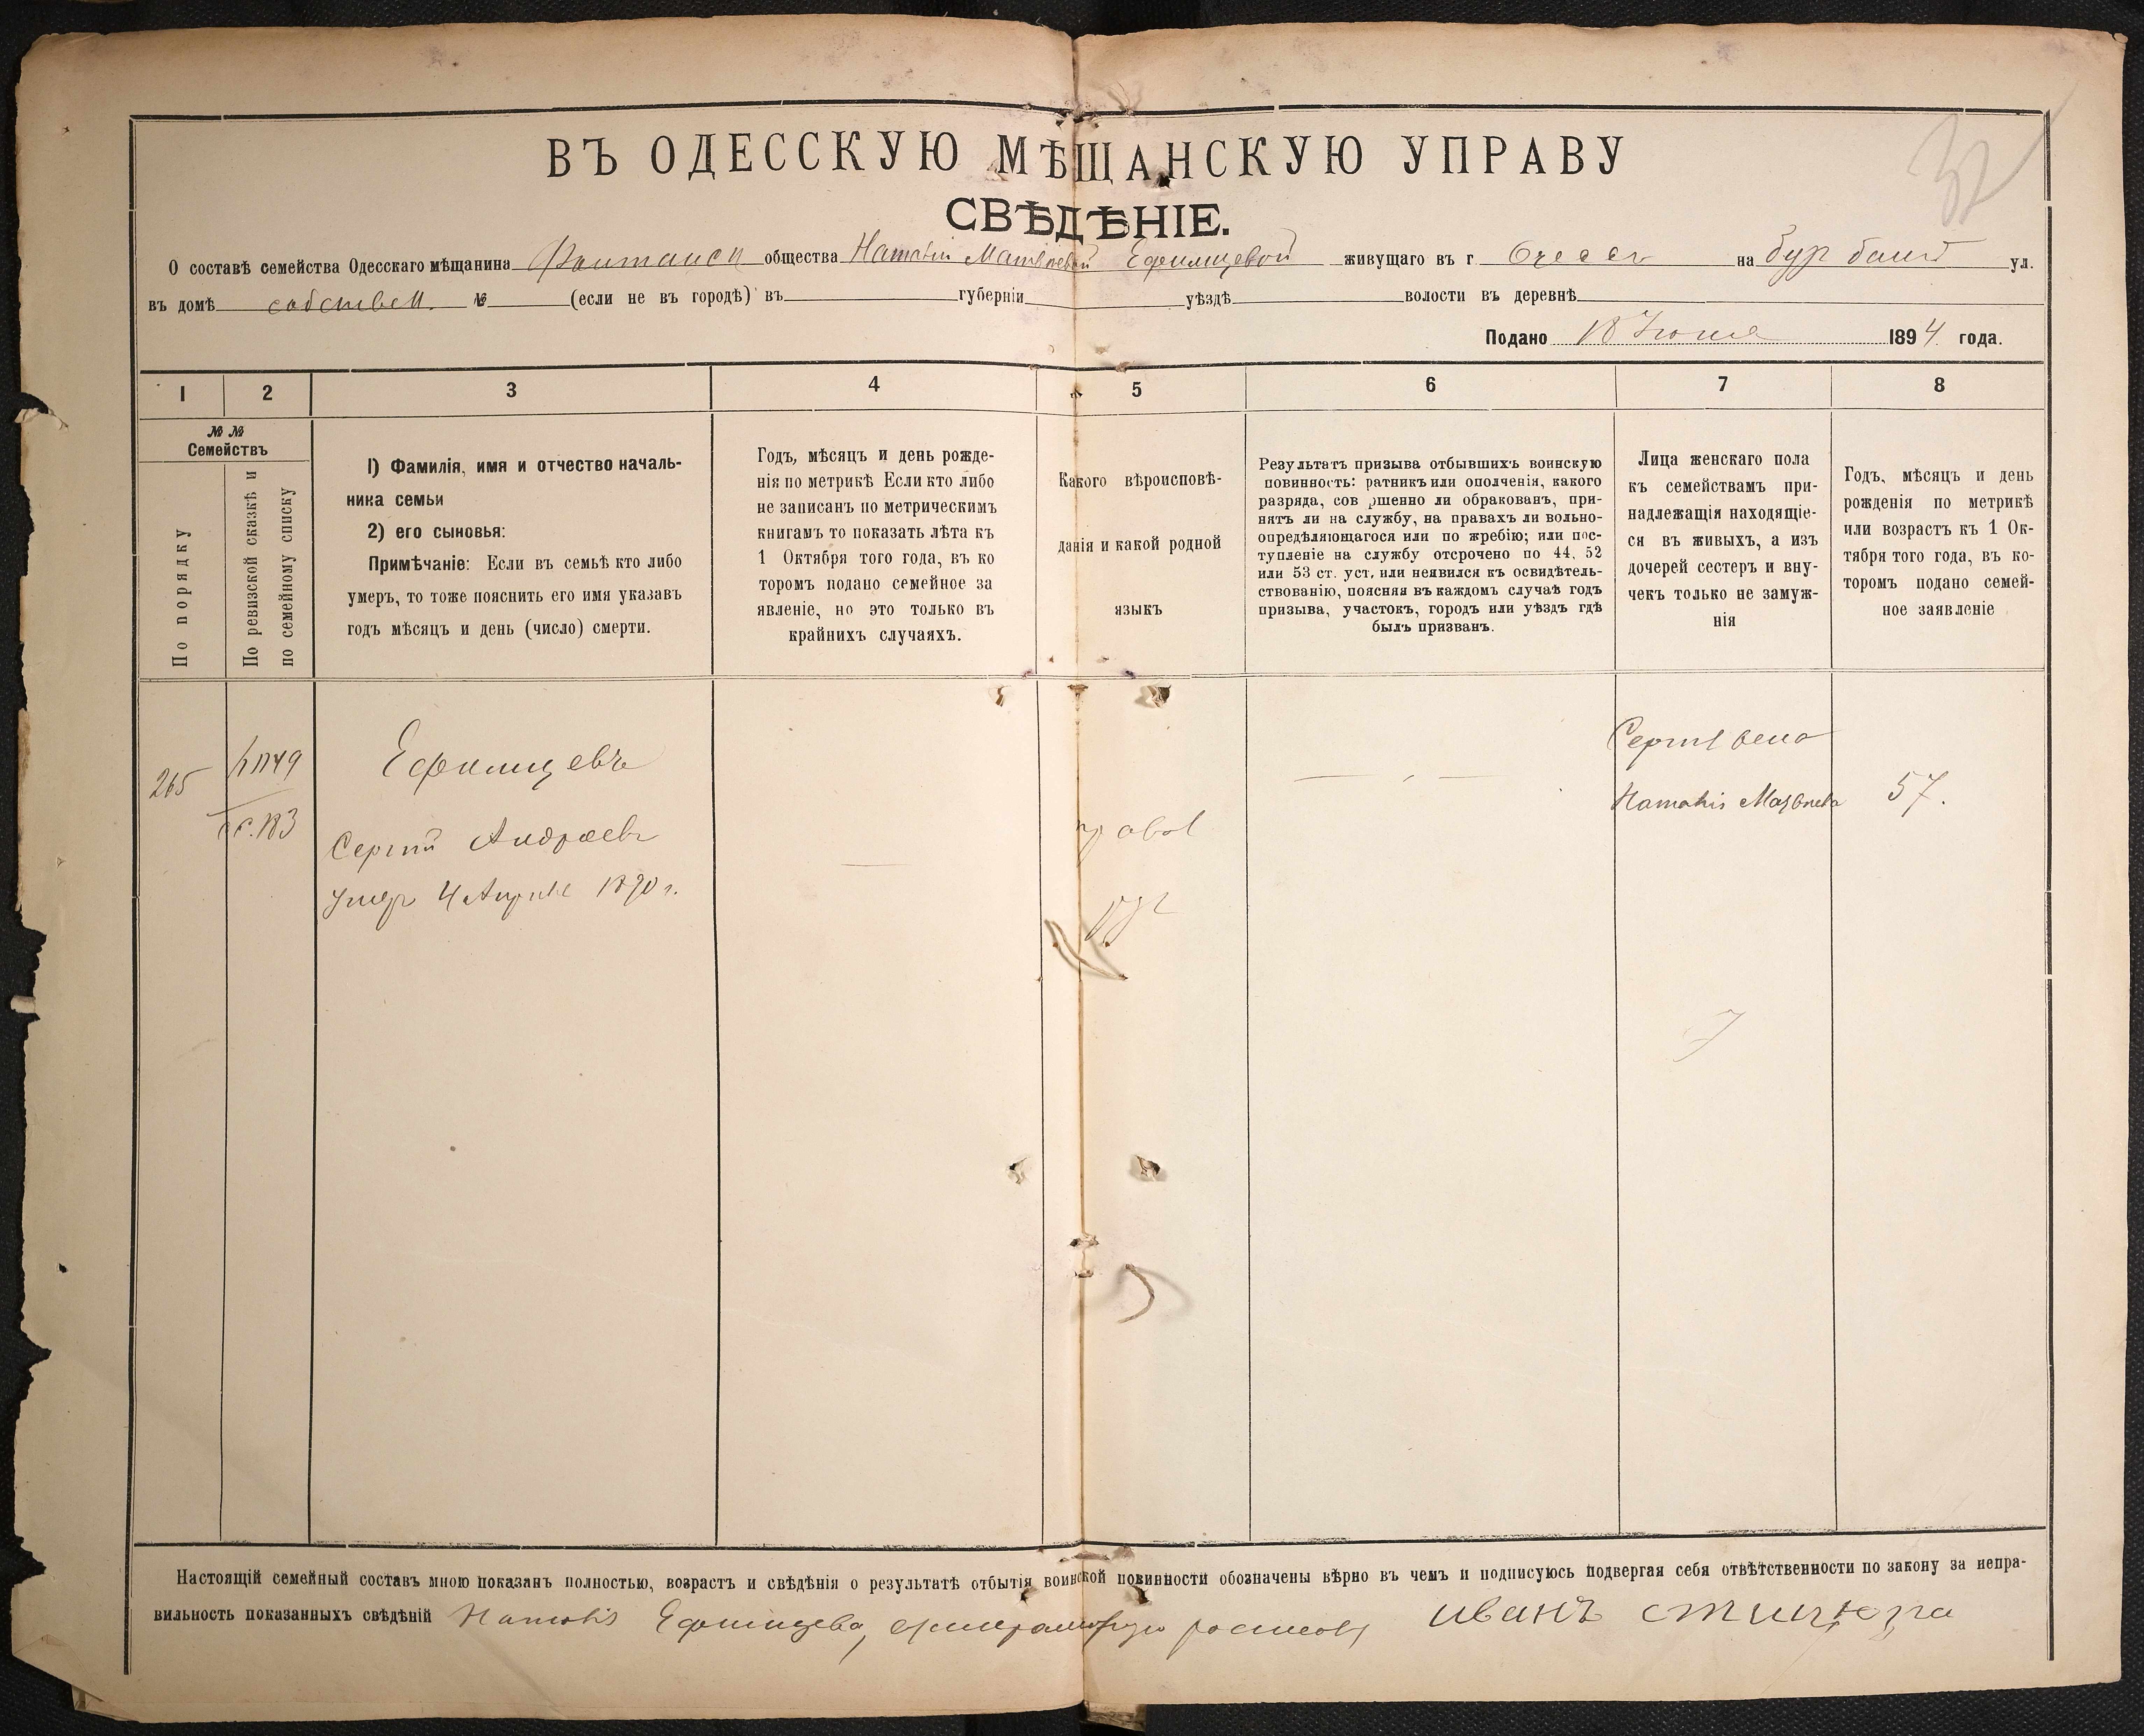 32
ВЪ ОДЕССКУЮ МѢЩАНСКУЮ УПРАВУ
СВѢДѢНІЕ.
О составѣ семейства Одесскаго мѣщанина Фонтанск общества Наталіи Матвѣевой Ефимцевой живущаго въ г Одессѣ на ул.
въ домѣ собствен. № (если не въ городѣ) въ губерніи уѣздѣ волости въ деревнѣ
Подано 18 Іюня 1894 года.
1 2 3 4 5 6 7 8
№ № Семействъ
По порядку
По ревизской сказкѣ и
по семейному списку
1) Фамилія, имя и отчество началь-
ника семьи
2) его сыновья:
Примѣчаніе: Если въ семьѣ кто либо
умеръ, то тоже пояснить его имя указавъ
годъ мѣсяцъ и день (число) смерти.
Годъ, мѣсяцъ и день рожде-
нія по метрикѣ Если кто либо
не записанъ по метрическимъ
книгамъ то показать лѣта къ
1 Октября того года, въ ко
торомъ подано семейное за
явленіе, но это только въ
крайнихъ случаяхъ.
Какого вѣроисповѣ-
данія и какой родной
языкъ
Результатъ призыва отбывшихъ воинскую
повинность: ратникъ или ополченія, какого
разряда, сов ршенно ли обракованъ, при-
нятъ ли на службу, на правахъ ли вольно-
опредѣляющагося или по жребію; или пос-
тупленіе на службу отсрочено по 44, 52
или 53 ст. уст, или неявился къ освидѣтель-
ствованію, поясняя въ каждомъ случаѣ годъ
призыва, участокъ, городъ или уѣздъ гдѣ
былъ призванъ.
Лица женскаго пола
къ семействамъ при-
надлежащія находящіе-
ся въ живыхъ, а изъ
дочерей сестеръ и вну-
чекъ только не замуж-
нія
Годъ, мѣсяцъ и день
рожденія по метрикѣ
или возрастъ къ 1 Ок-
тября того года, въ ко-
торомъ подано семей-
ное заявленіе
265
с.с. 183
Ефимцевъ
Сергій Андреевъ
умеръ 4 Апрѣля 1890 г.
правос
Сергія жена
Наталія Матвѣева
57.
Настоящій семейный составъ мною показанъ полностью, возрастъ и свѣдѣнія о результатѣ отбытія воинской повинности обозначены вѣрно въ чемъ и подписуюсь подвергая себя отвѣтственности по закону за непра-
вильность показанныхъ свѣдѣній Наталія Ефимцева, иванъ